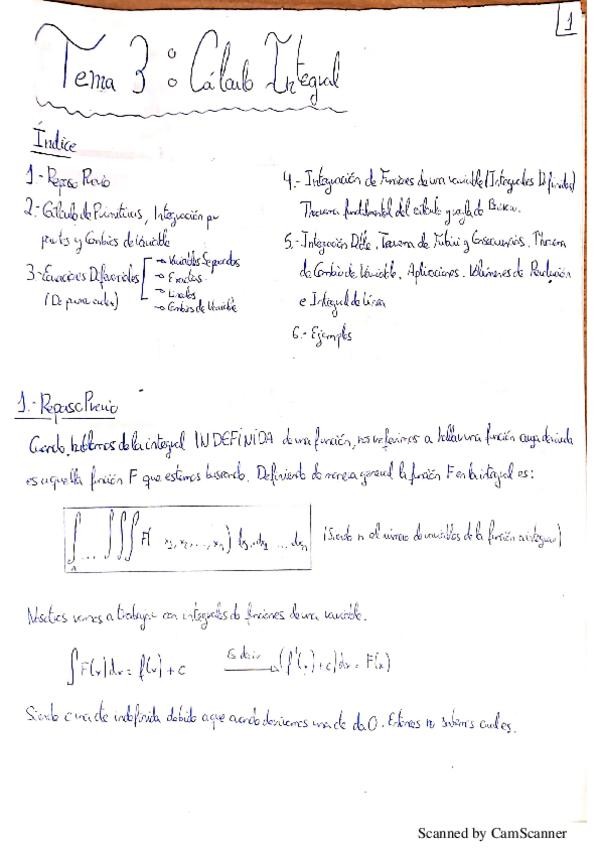 1
Tema 3: Cálculo Integral
Índice
1.- Repaso Previo
2.- Cálculo de Primitivas, Integración por
partes y Cambios de Variable
3.- Ecuaciones Diferenciales
→ Variables Separadas
→ Exactas
→ Lineales
→ Cambios de Variable
4.- Integración de Funciones de una variable (Integrales Definidas)
Teorema fundamental del cálculo y regla de Barrow.
5.- Integración Doble. Teorema de Fubini y Consecuencias. Teorema
de Cambio de Variable. Aplicaciones. Volúmenes de Revolución
e Integral de Línea
6.- Ejemplos
1.- Repaso Previo
Cuando hablamos de la integral INDEFINIDA de una función, nos referimos a hallar una función cuya derivada
es aquella función F que estamos buscando. Definiendo de manera general la función F en la integral es:
∫ ... ∫∫∫ F( x₁, x₂, ..., xₙ) dx₁ dx₂ ... dxₙ (Siendo n el número de variables de la función a integrar)
A
Nosotros vamos a trabajar con integrales de funciones de una variable.
∫F(x)dx = f(x) + c Es decir → (f'(x) + c)dx = F(x)
Siendo c una cte indefinida debido a que cuando derivamos una cte da 0. Entonces no sabemos cual es.
Scanned by CamScanner